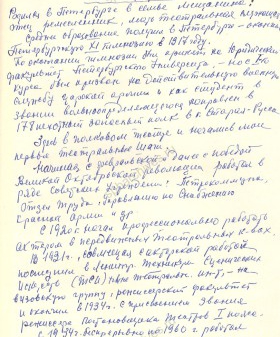 Родился в Петербурге в семье мещанина.
отец ремесленник, мать театральная
Среднее образование получил в Петербурге - окончил
Петербургскую XI гимназию в 1914 году.
По окончании гимназии был принят на Юридический
факультет Петербургского Университета, но со II
курса был призван на действительную военную
службу царской армии и как студент в
звании вольноопределяющегося направлен в
178 пехотный запасной полк в г. Старая-Русса
Здесь в полковом театре и начались мои
первые театральные шаги.
Начиная с февральской и далее с победой
Великой Октябрьской революции работал в
ряде Советских учреждений: Петрокоммуна,
Отдел Труда, Управление по Снабжению
Красной Армии и др
С 1920 г. начал профессионально работать
актером в передвижных театральных к-вах.
В 1931 г., совмещая с актерской работой,
поступил в Ленингр. Техникум Сценических
Искусств, (ТСИ) ныне театральн. инст-т - на
вузовскую группу, режиссерский факультет
и окончил в 1934 г. с присвоением звания
режиссера постановщика театров I пояса.
С 1934 г. беспрерывно по 1960 г. работал